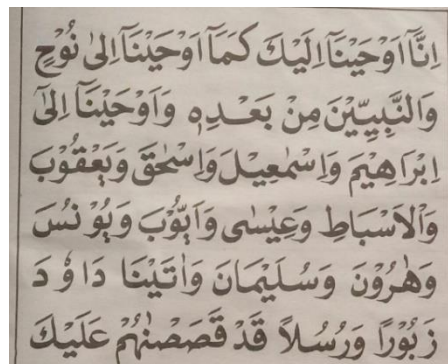 اِنَّاۤ اَوْحَيْنَاۤ اِلَيْكَ كَمَاۤ اَوْحَيْنَاۤ اِلٰى نُوْحٍ
وَالنَّبِيّٖنَ مِنْ بَعْدِهٖ وَاَوْحَيْنَاۤ اِلٰۤى
اِبْرَاهِيْمَ وَاِسْمٰعِيْلَ وَاِسْحٰقَ وَيَعْقُوْبَ
وَالْاَسْبَاطِ وَعِيْسٰى وَاَيُّوْبَ وَيُوْنُسَ
وَهٰرُوْنَ وَسُلَيْمَانَ وَاٰتَيْنَا دَاوٗدَ
زَبُوْرًا وَرُسُلًا قَدْ قَصَصْنٰهُمْ عَلَيْكَ